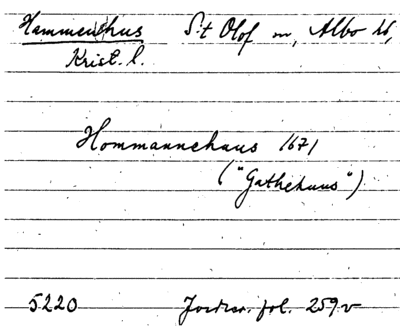 Hammenthus S:t Olof sn, Albo hd,
Krist. l.
Hommannehuus 1671
("Gathehuus")
5220 Jordrev. fol. 259v